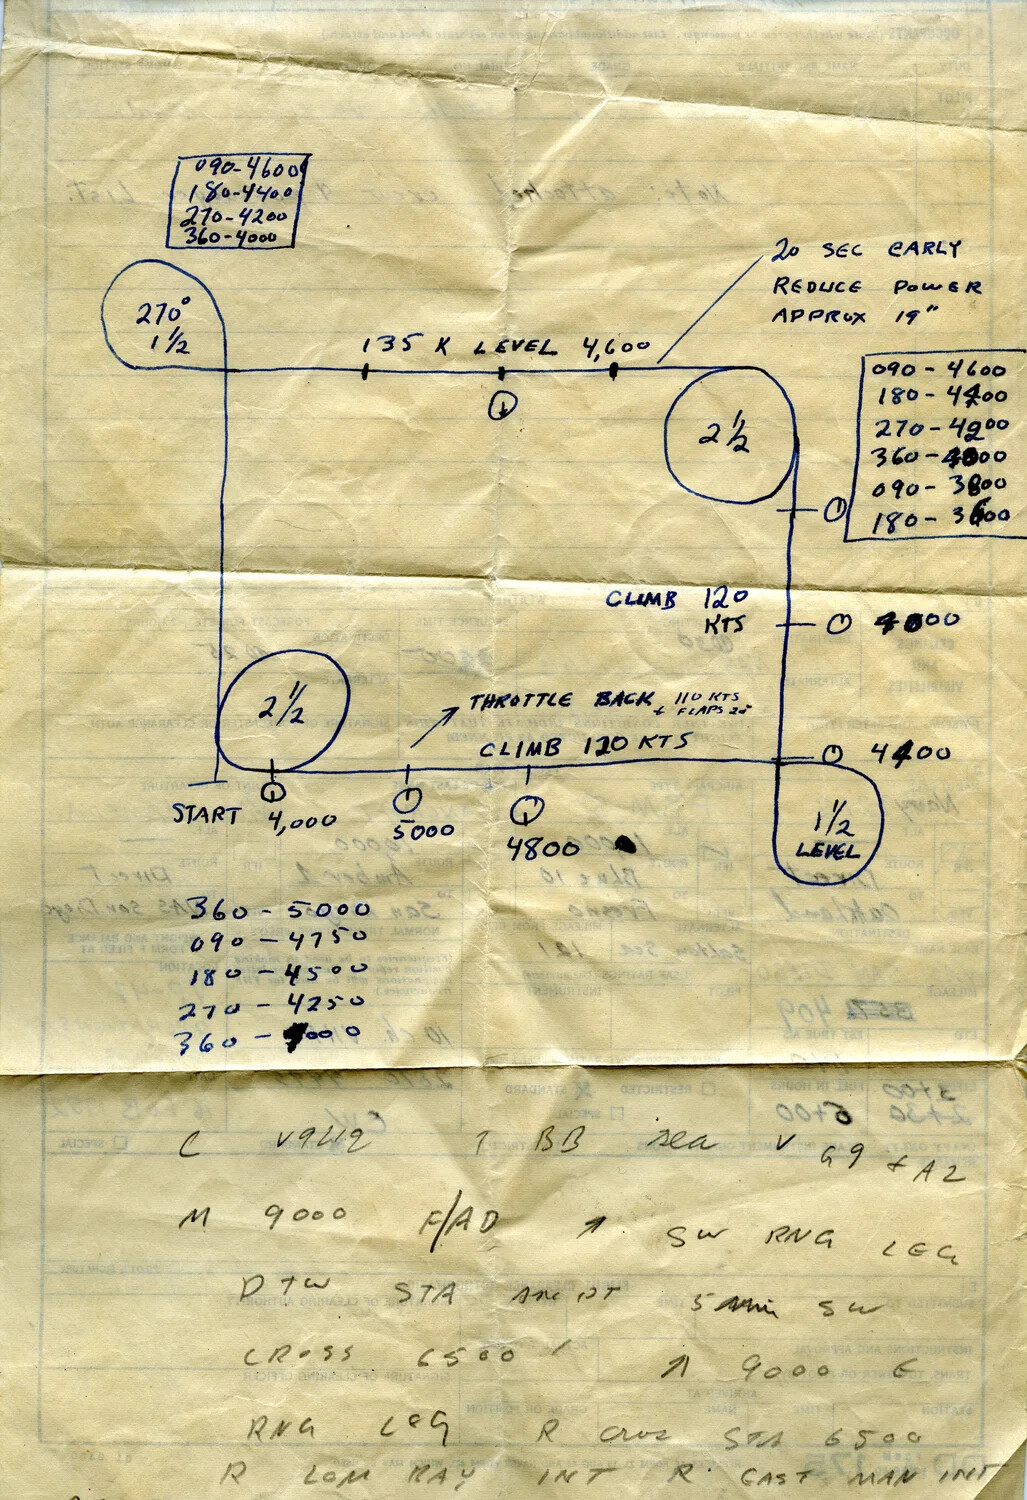 090-4600
180-4400
270-4200
360-4000
20 SEC EARLY
REDUCE POWER
APPROX 19"
270°
1 1/2
135 K LEVEL 4,600
2 1/2
090 - 4600
180 - 4400
270 - 4200
360 - 4000
090 - 3800
180 - 3600
CLIMB 120
KTS
4000
2 1/2
THROTTLE BACK + 110 KTS
FLAPS
CLIMB 120 KTS
4400
START
4,000
5000
4800
1 1/2
LEVEL
360 - 5000
090 - 4750
180 - 4500
270 - 4250
360 - 4000
C BB V G9 + A2
M 9000 F/AD ↑ SW RNG LEG
DTW STA 5 min SW
CROSS 6500' ↑ 9000 E
RNG LEG R cross STA 6500
R LOM RAY INT R EAST MAN INT